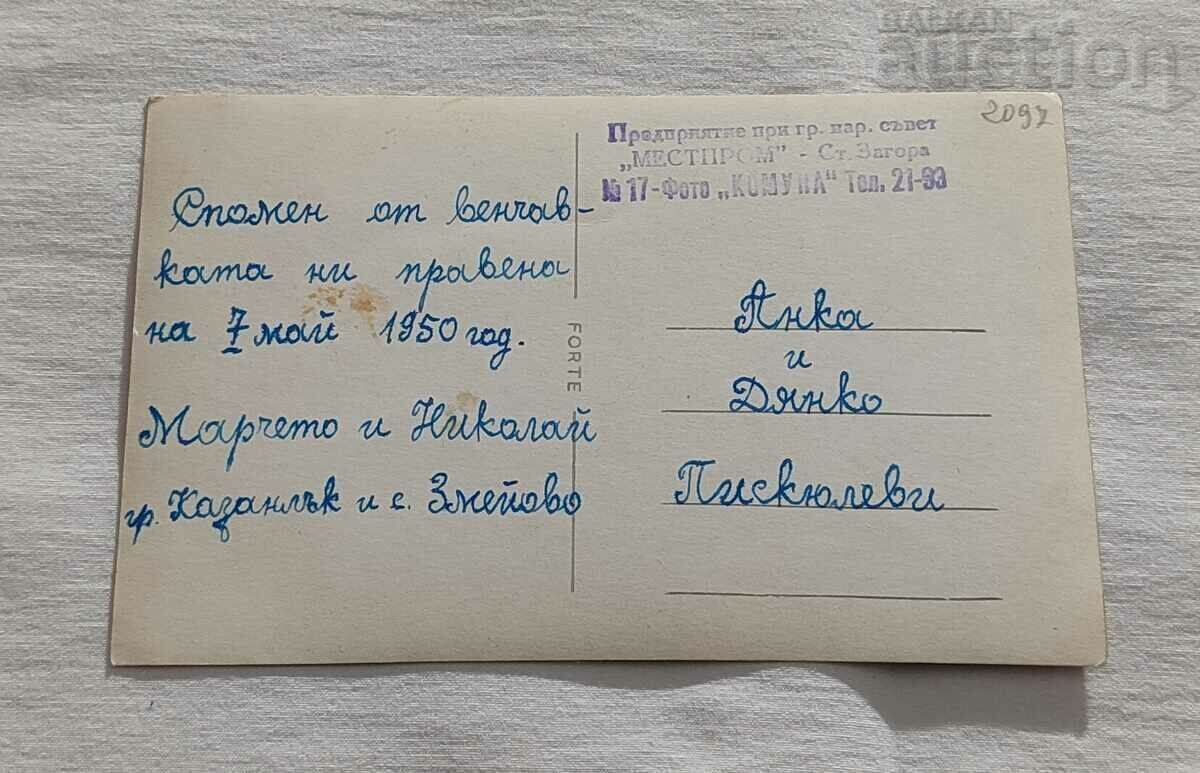 БАЛКАН
auction
2097
Предприятие при гр. нар. съвет
„МЕСТПРОМ" - Ст. Загора
№ 17-Фото „КОМУНА" Тел. 21-93
Спомен от венчав-
ката ни правена
на 7 май 1950 год.
Марчето и Николай
гр. Казанлък и с. Змейово
FORTE
Янка
и
Дянко
Пискюлеви